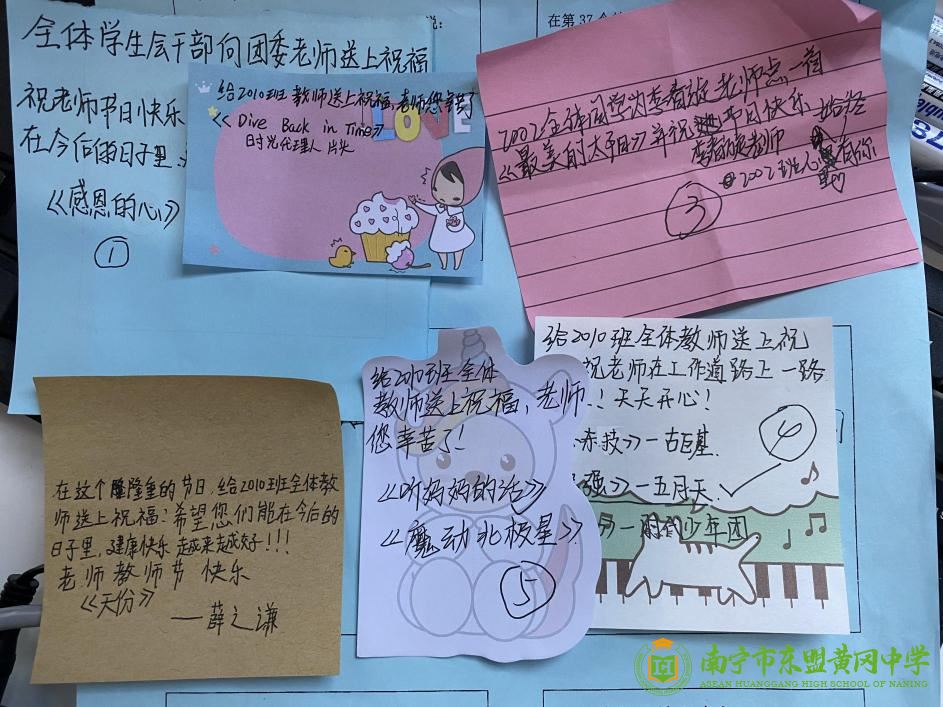 说:
在第37个
全体学生会干部向团委老师送上祝福
祝老师节日快乐
在今后的日子里
《感恩的心》
①
给2010班 教师送上祝福,老师您辛苦了
《Dive Back in Time》
时光代理人 片头
LOVE
2002全体同学为李春旋老师点一首
《最美的太阳》并祝 节日快乐
老师
2002班 有你
③
在这个隆重的节日,给2010班全体教
师送上祝福:希望您们能在今后的
日子里,健康快乐 越来越好!!!
老师教师节快乐
《天份》
——薛之谦
给2010班全体
教师送上祝福,老师
您辛苦了!
《听妈妈的话》
《魔动北极星》
⑤
给2010班全体教师送上祝
祝老师在工作道路上一路
!天天开心!
》—古巨基
强》—五月天
》—时代少年团
④
南宁市东盟黄冈中学
ASEAN HUANGGANG HIGH SCHOOL OF NANING